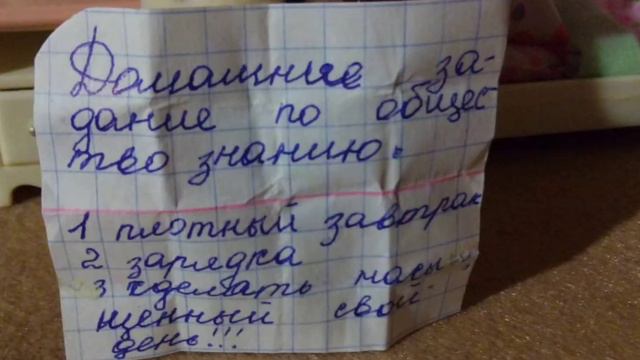 Домашние за-
дание по общес
тво знанию.
1 плотный завтрак
2 зарядка
3 сделать насы-
щенный свой
день!!!